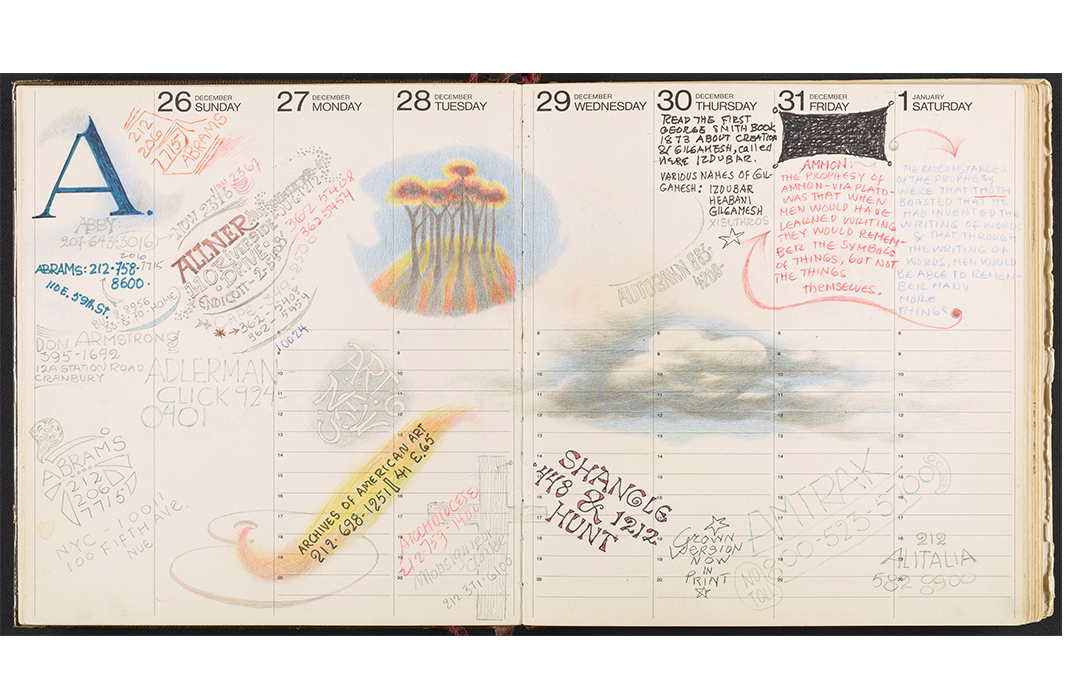 26 DECEMBER
SUNDAY
27 DECEMBER
MONDAY
28 DECEMBER
TUESDAY
29 DECEMBER
WEDNESDAY
30 DECEMBER
THURSDAY
31 DECEMBER
FRIDAY
1 JANUARY
SATURDAY
A.
ABBY
207·643·3016
206
7715
ABRAMS: 212·758·
8600·
110 E. 59th St.
DON ARMSTRONG
395-1692
12A STATION ROAD
CRANBURY
ABRAMS
212
206
7715
NYC 10011
100 FIFTH AVE.
NUE
212
206
7715
ABRAMS
NOV 2367
NOV 2376
ALLNER
110 RIVERSIDE
DRIVE
ENDICOTT-2-5408
362 5408
362 5454
CARE
→362-5408
362-5454
10024
ADLERMAN
CLICK 924
0401
ART
NEW
ARCHIVES OF AMERICAN ART
212·628·1251 41 E.65
ARCHDIOCESE
212·759
1400
MONSIGNOR
CLARE
212·371·6100
READ THE FIRST
GEORGE SMITH BOOK
1873 ABOUT CREATION
& GILGAMESH, called
HERE IZDUBAR.
VARIOUS NAMES OF GIL-
GAMESH: IZDUBAR
HEABANI
GILGAMESH
XISUTHROS
AUTOGRAWN 895-
4208-
AMMON:
THE PROPHESY OF
AMMON-VIA PLATO-
WAS THAT WHEN
MEN WOULD HAVE
LEARNED WRITING
THEY WOULD REMEM-
BER THE SYMBOLS
OF THINGS, BUT NOT
THE THINGS
themselves.
THE CIRCUMSTANCES
OF THE PROPHESY
WERE THAT THOTH
BOASTED THAT HE
HAD INVENTED THE
WRITING OF WORDS
& THAT THROUGH
THE WRITING OF
WORDS, MEN WOULD
BE ABLE TO REMEM-
BER MANY
MORE
THINGS
SHANGLE
448 & 1212
HUNT
CROWN
VERSION
NOW
IN
PRINT
AMTRAK
800-523-5700
NO
TOLL
212
ALITALIA
582 8900